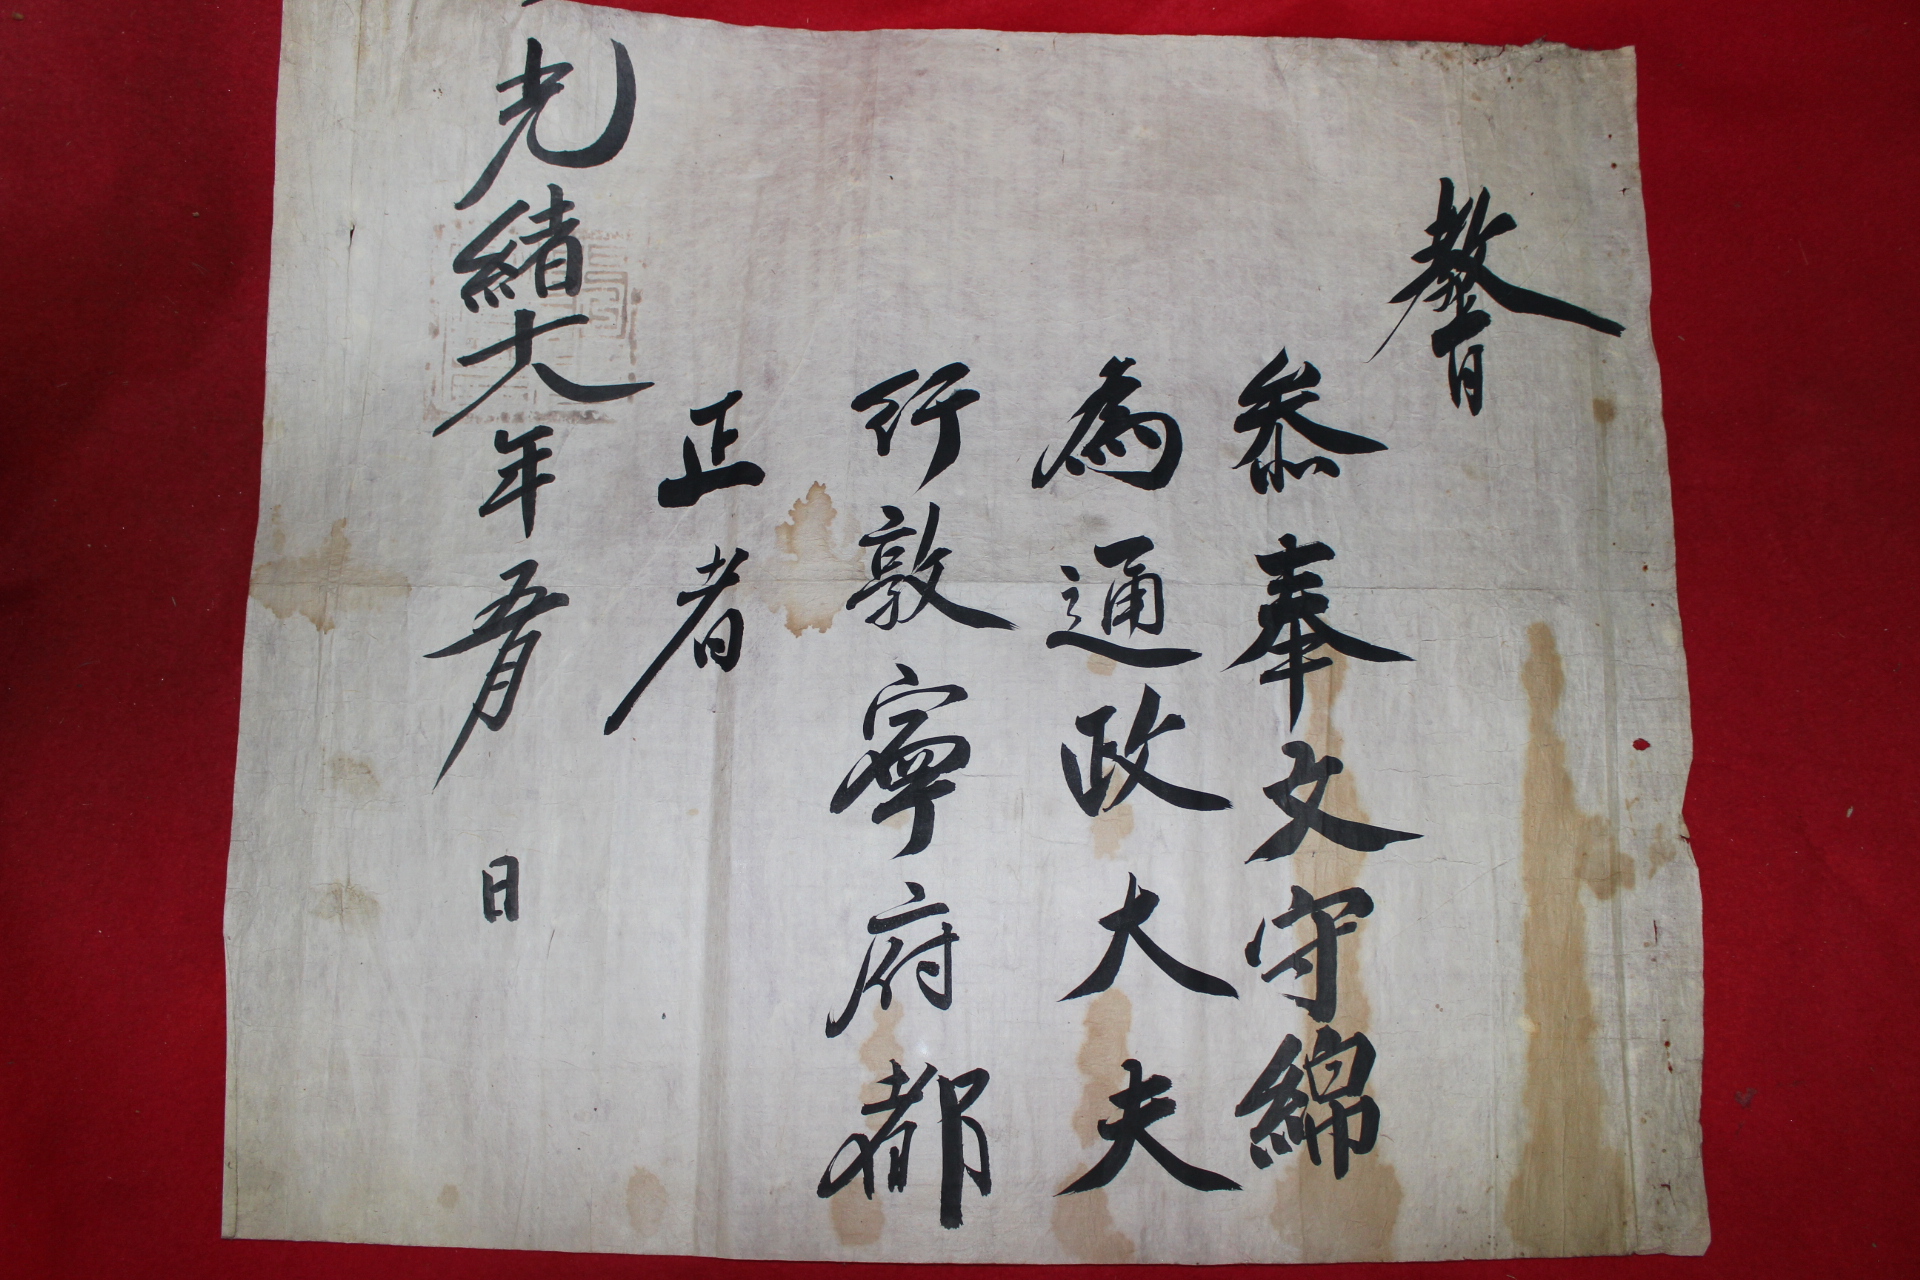 敎旨
叅奉文守綿
為通政大夫
行敦寧府都
正者
光緖六年五月 日